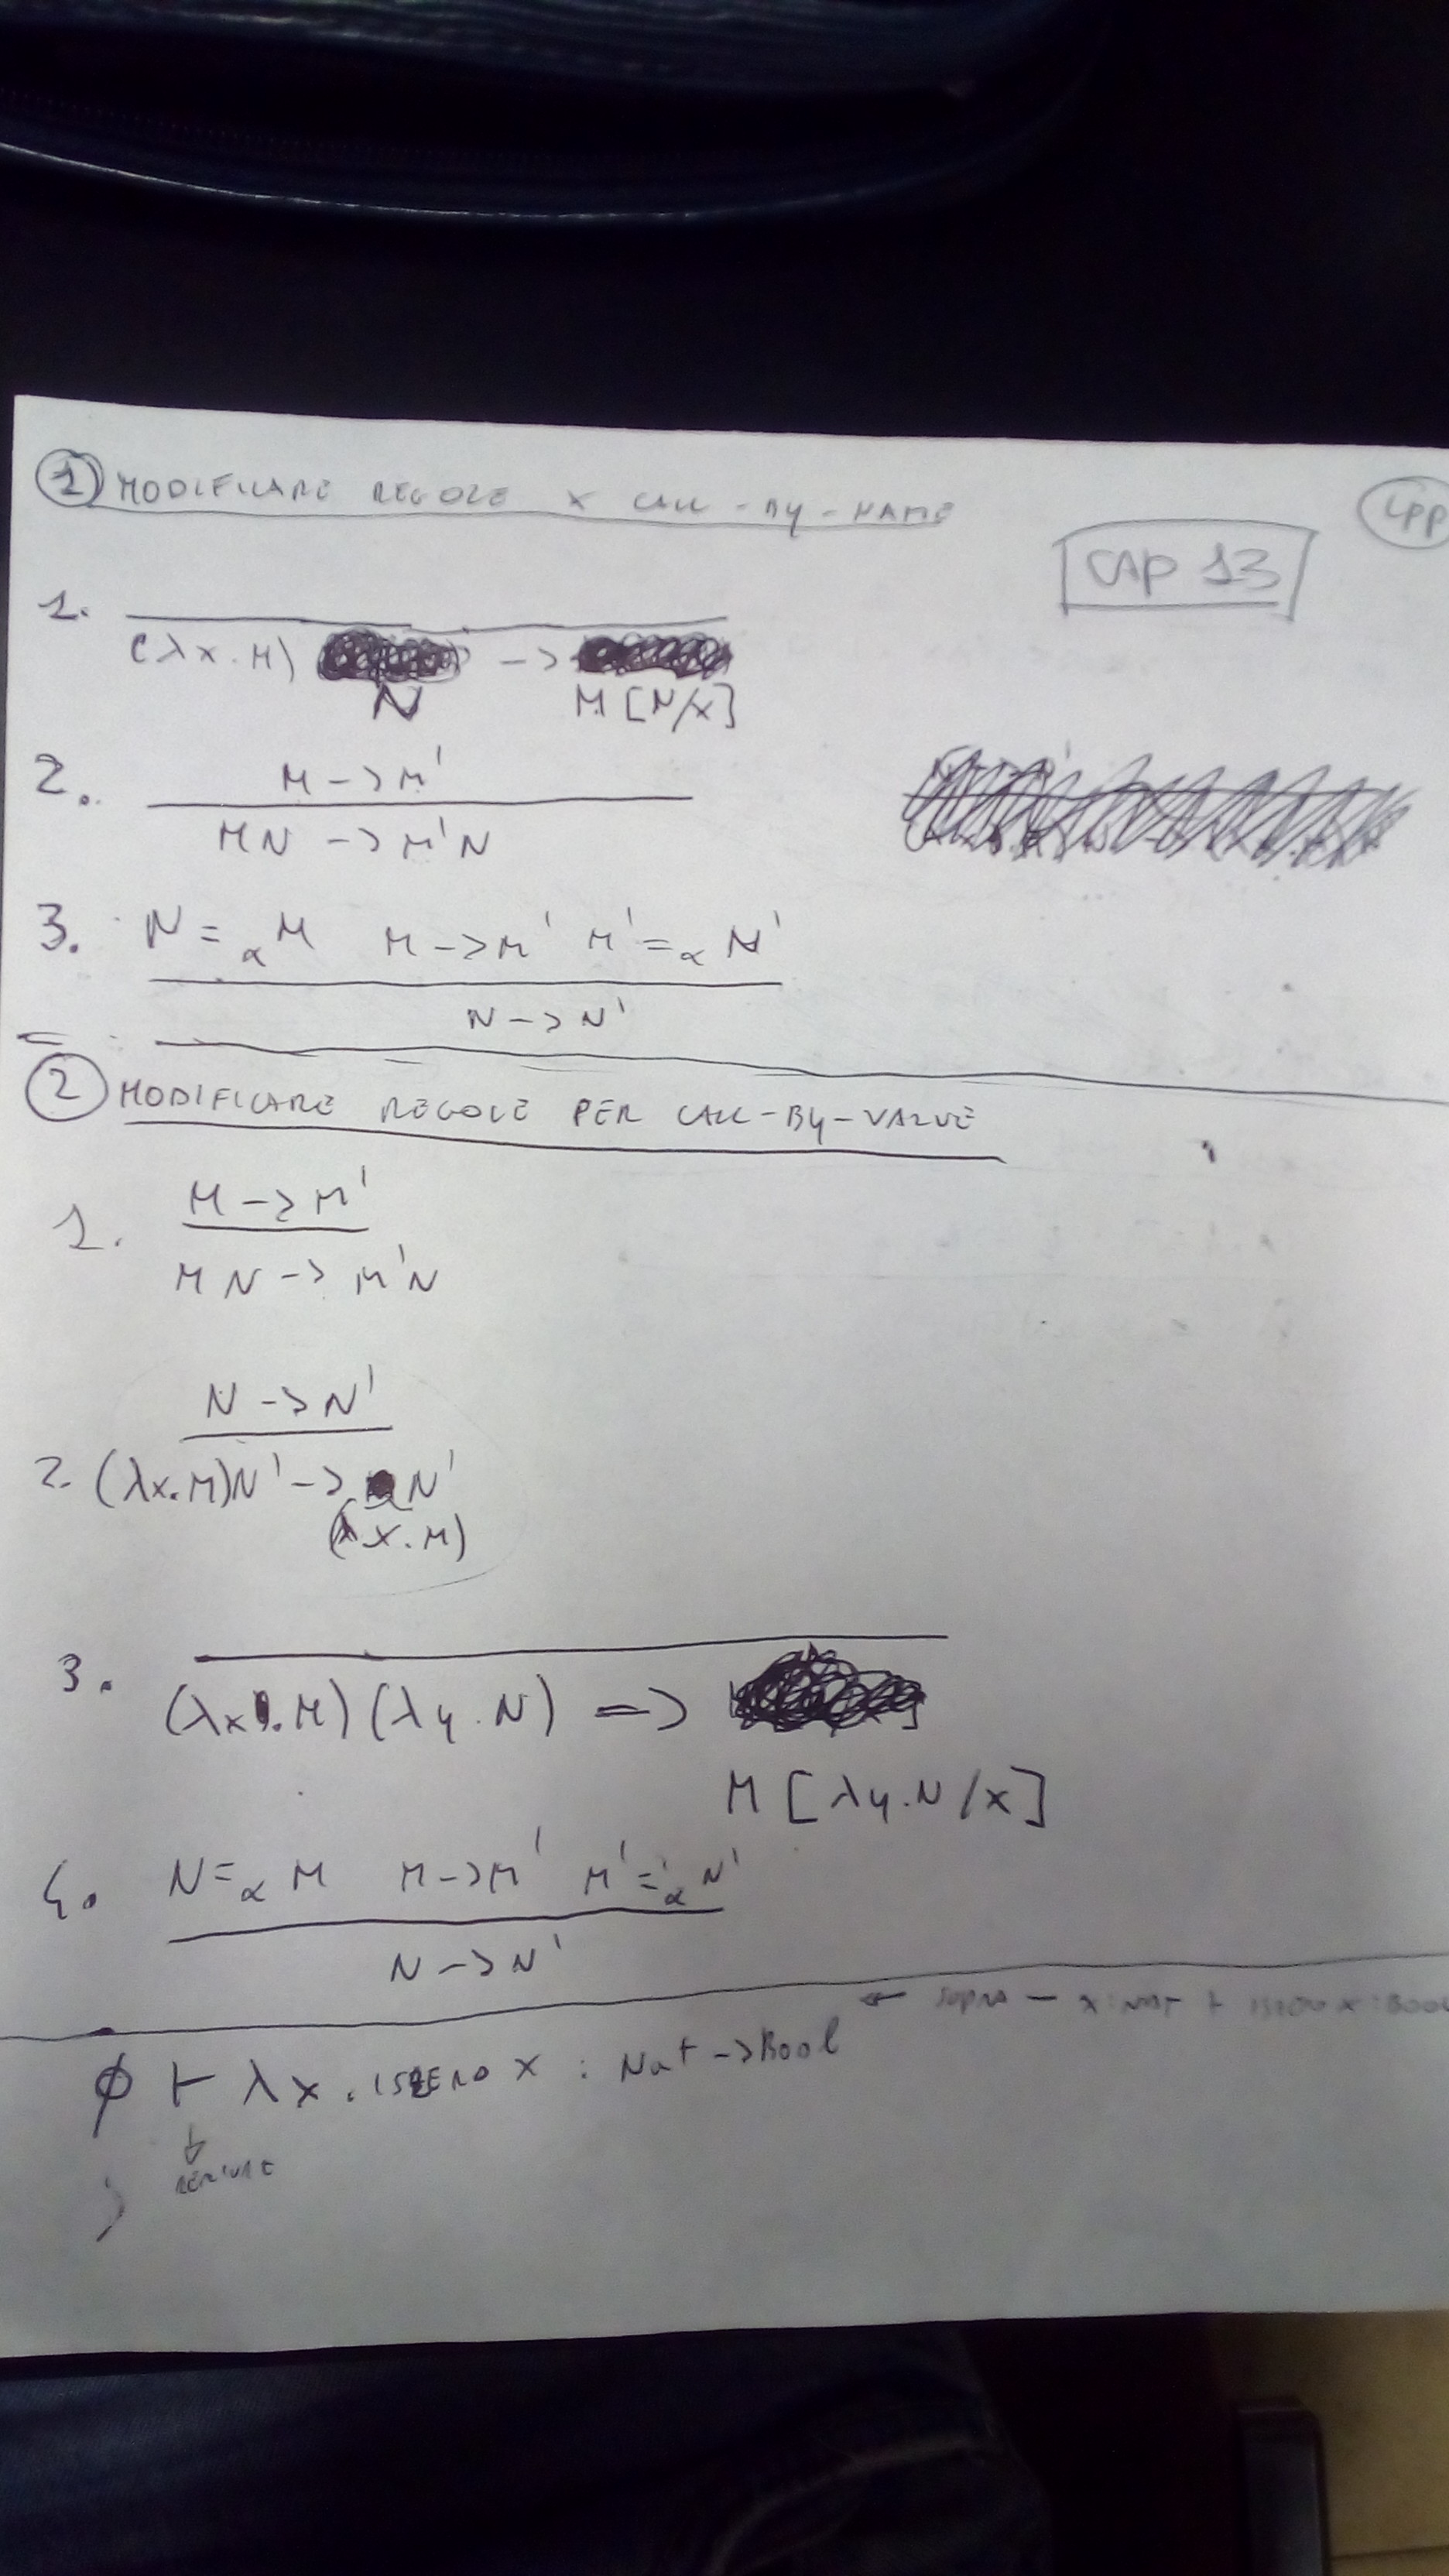 1) MODIFICARE REGOLE X CALL-BY-NAME
LPP
CAP 13
1. (λx.M) N -> M[N/x]
2. M -> M'
MN -> M'N
3. N =α M M -> M' M' =α N'
N -> N'
2 MODIFICARE REGOLE PER CALL-BY-VALUE
1. M -> M'
MN -> M'N
N -> N'
2. (λx.M)N' -> N'
(λx.M)
3. (λx.M)(λy.N) =>
M[λy.N/x]
4. N =α M M -> M' M' =α N'
N -> N'
← SOPRA - x:NAT ⊢ ISZERO x:BOOL
∅ ⊢ λx.ISZERO x : Nat -> Bool